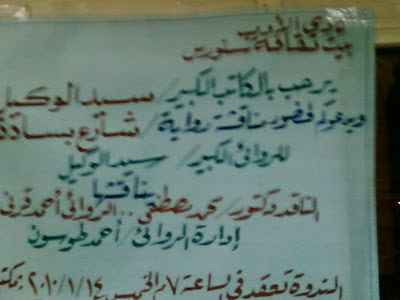 نادي الأدب
بيت ثقافة سنورس
يرحب بالكاتب الكبير / سيد الوكيل
ويدعوكم لحضور مناقشة رواية / شارع بسادة
للروائى الكبير / سيد الوكيل
يناقشها
الناقد دكتور / محمد مصطفى .. الروائى أحمد قرنى
إدارة الروائى / أحمد طوسون
الندوة تعقد في الساعة ٧ الخميس ٢٠١٠/١/١٤